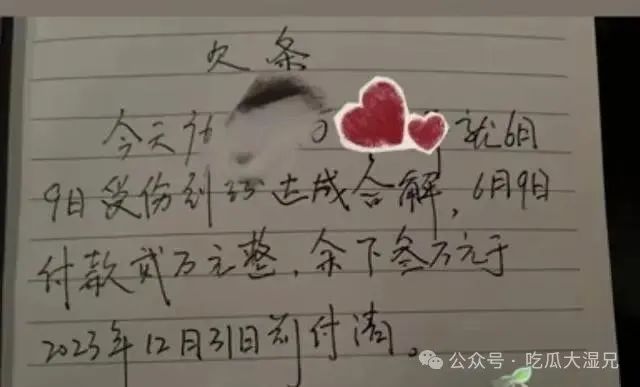 欠条
今天 就6月
9日受伤到 达成合解,6月9日
付款贰万元整,余下叁万元于
2023年12月31日前付清。
公众号·吃瓜大湿兄